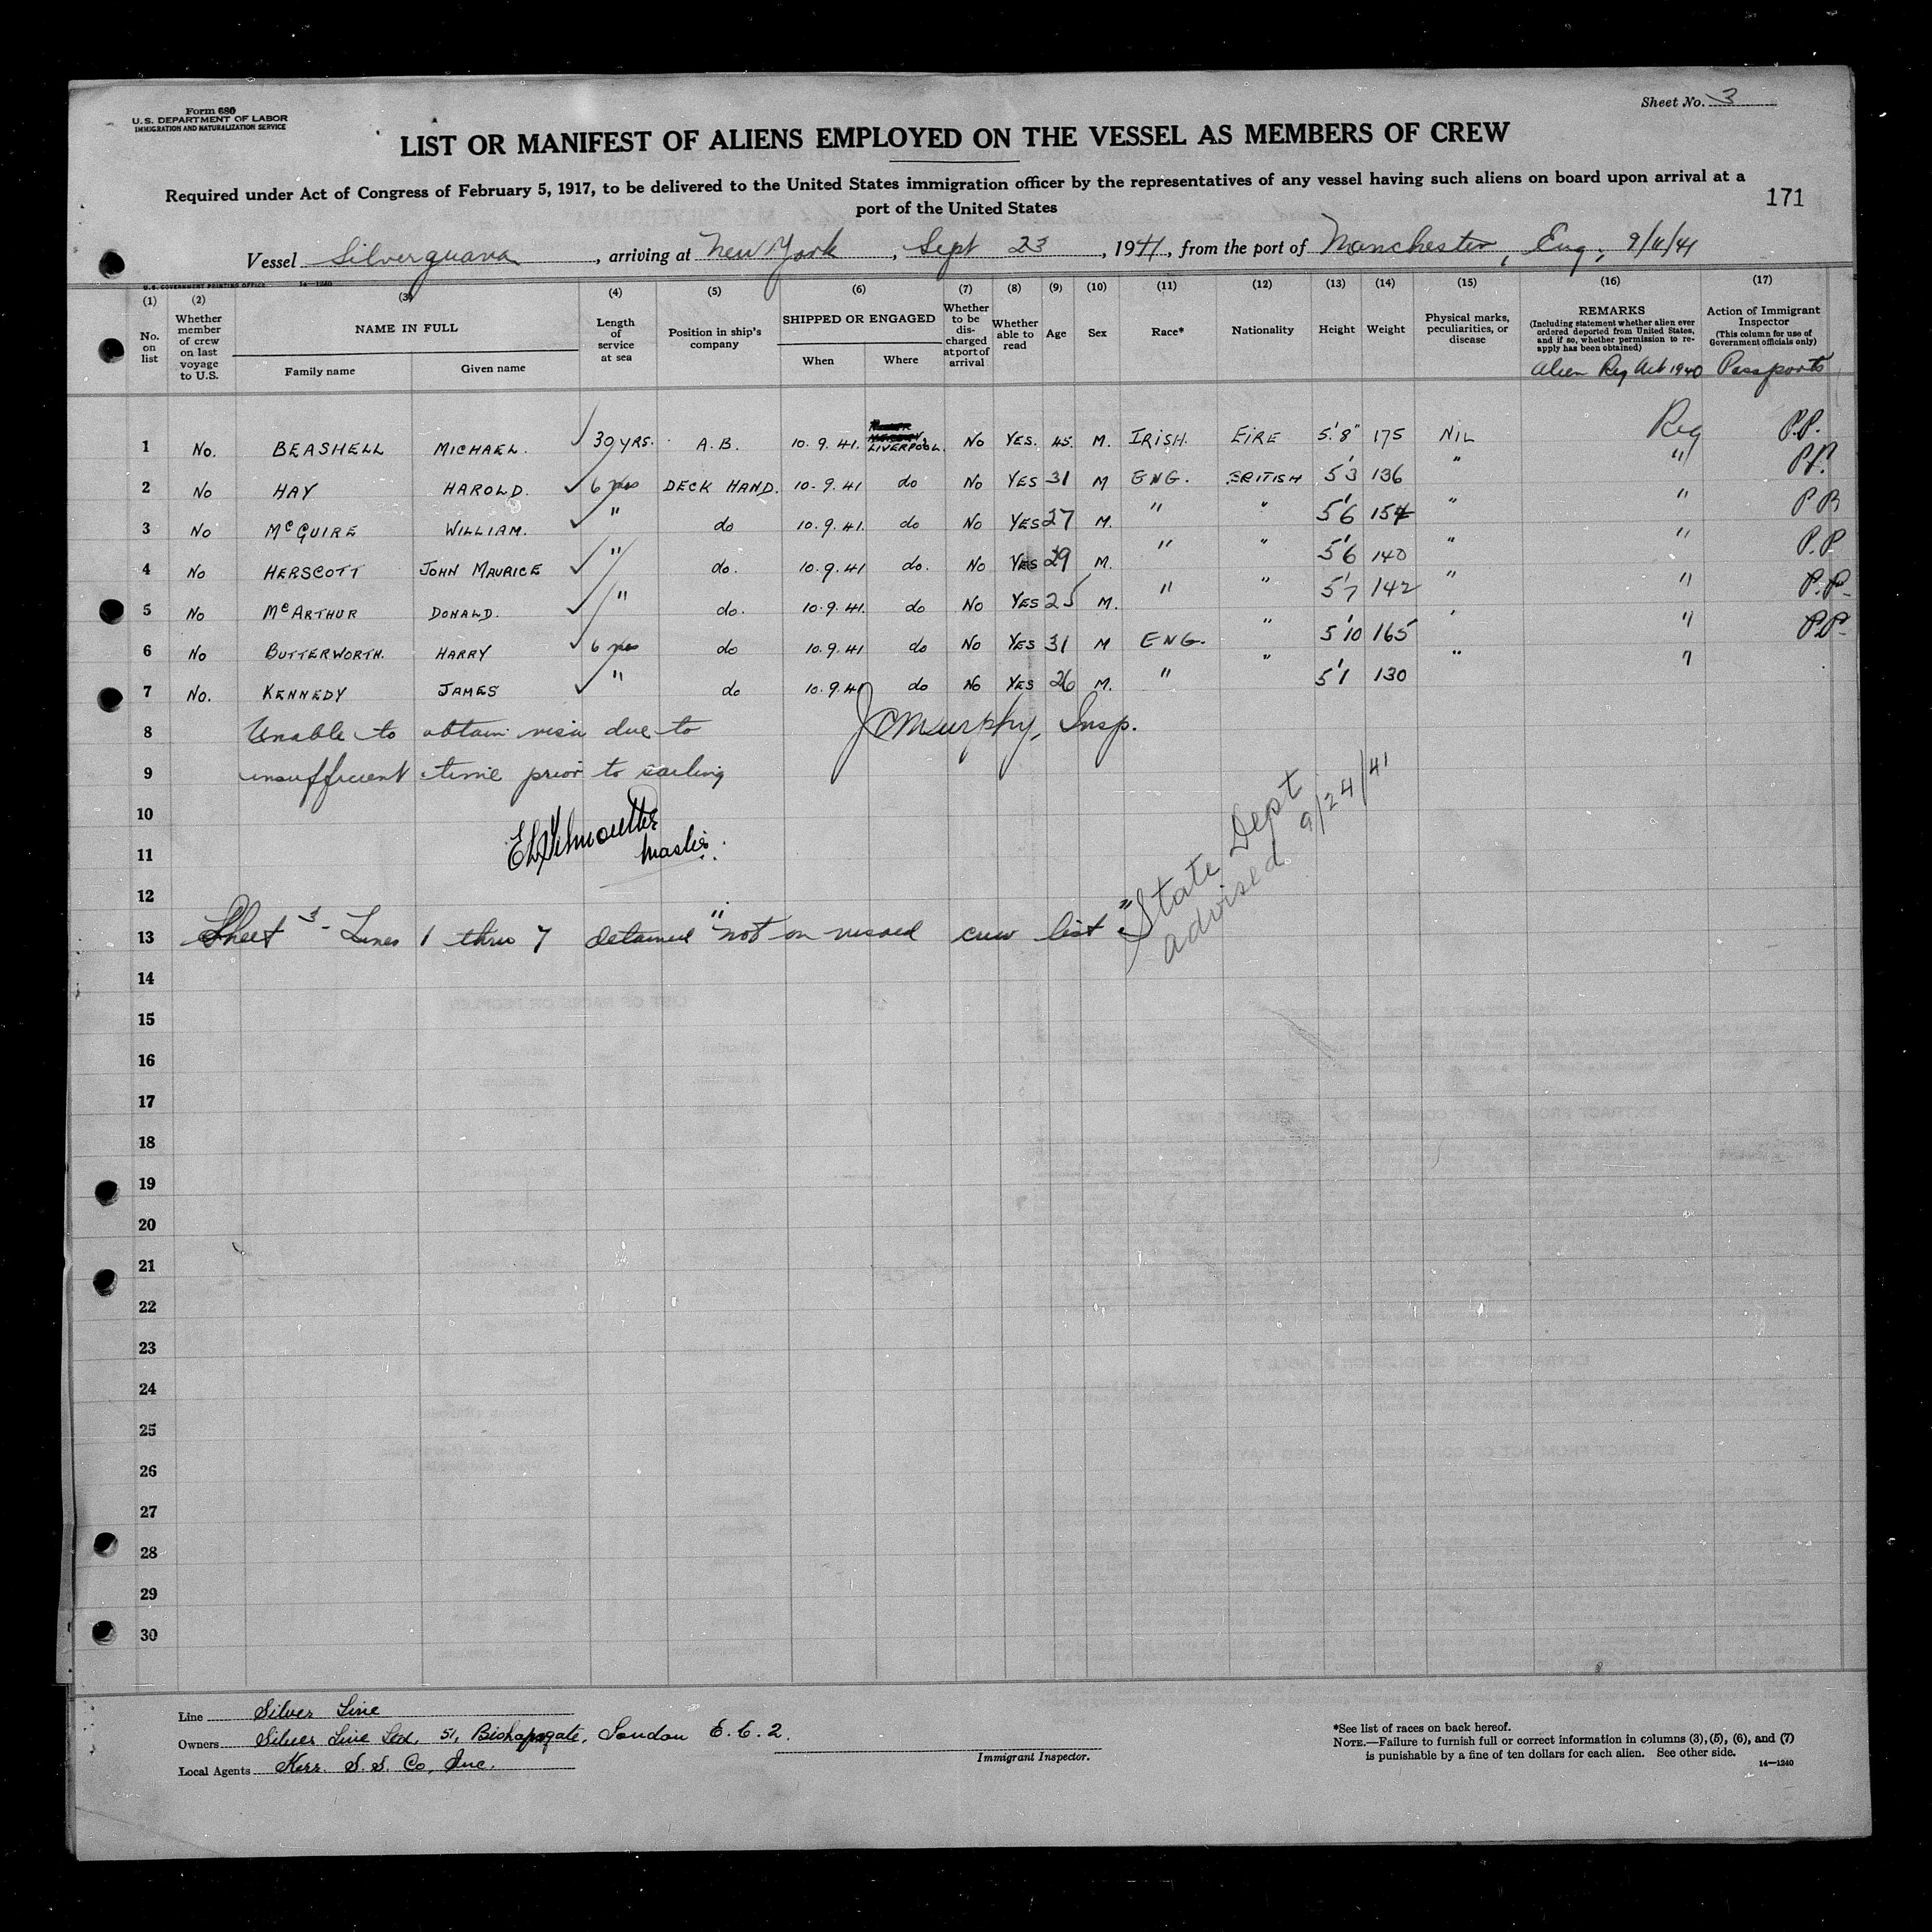 Form 680
U. S. DEPARTMENT OF LABOR
IMMIGRATION AND NATURALIZATION SERVICE
Sheet No. 3
LIST OR MANIFEST OF ALIENS EMPLOYED ON THE VESSEL AS MEMBERS OF CREW
Required under Act of Congress of February 5, 1917, to be delivered to the United States immigration officer by the representatives of any vessel having such aliens on board upon arrival at a
port of the United States
171
Vessel Silverguava, arriving at New York, Sept 23, 1941, from the port of Manchester, Eng; 9/11/41
U. S. GOVERNMENT PRINTING OFFICE 14—1240
(1) (2) (3) (4) (5) (6) (7) (8) (9) (10) (11) (12) (13) (14) (15) (16) (17)
No. on list
Whether member of crew on last voyage to U.S.
NAME IN FULL
Family name
Given name
Length of service at sea
Position in ship's company
SHIPPED OR ENGAGED
When
Where
Whether to be discharged at port of arrival
Whether able to read
Age
Sex
Race*
Nationality
Height
Weight
Physical marks, peculiarities, or disease
REMARKS
(Including statement whether alien ever ordered deported from United States, and if so, whether permission to reapply has been obtained)
Alien Reg Act 1940
Action of Immigrant Inspector
(This column for use of Government officials only)
Passports
1 No. BEASHELL MICHAEL. 30 YRS. A.B. 10.9.41. LIVERPOOL. No YES. 45. M. IRISH. EIRE 5'.8" 175 NIL Reg P.P.
2 No HAY HAROLD. 6 yrs DECK HAND. 10-9.41 do No YES 31 M ENG. BRITISH 5'3 136 " " P.P.
3 No McGUIRE WILLIAM. " do 10.9.41. do No YES 27 M. " " 5'6 154 " " P.P.
4 No HERSCOTT JOHN MAURICE " do. 10.9.41 do. No YES 29 M. " " 5'6 140 " " P.P
5 No McARTHUR DONALD. " do. 10.9.41. do No YES 25 M. " " 5'7 142 " " P.P.
6 No BUTTERWORTH. HARRY 6 yrs do 10.9.41 do No YES 31 M ENG. " 5'10 165 " " P.P.
7 No. KENNEDY JAMES " do 10.9.41 do No YES 26 M. " " 5'1 130 " "
8 Unable to obtain visa due to JCMurphy, Insp.
9 insufficient time prior to sailing
10
11 Master.
12
13 Sheet 3 - Lines 1 thru 7 detained "not on visaed crew list"
State Dept
advised 9/24/41
14
15
16
17
18
19
20
21
22
23
24
25
26
27
28
29
30
Line Silver Line
Owners Silver Line Ltd. 51, Bishopsgate, London E.C.2.
Local Agents Kerr. S.S. Co, Inc.
Immigrant Inspector.
*See list of races on back hereof.
NOTE.—Failure to furnish full or correct information in columns (3), (5), (6), and (7)
is punishable by a fine of ten dollars for each alien. See other side.
14—1240